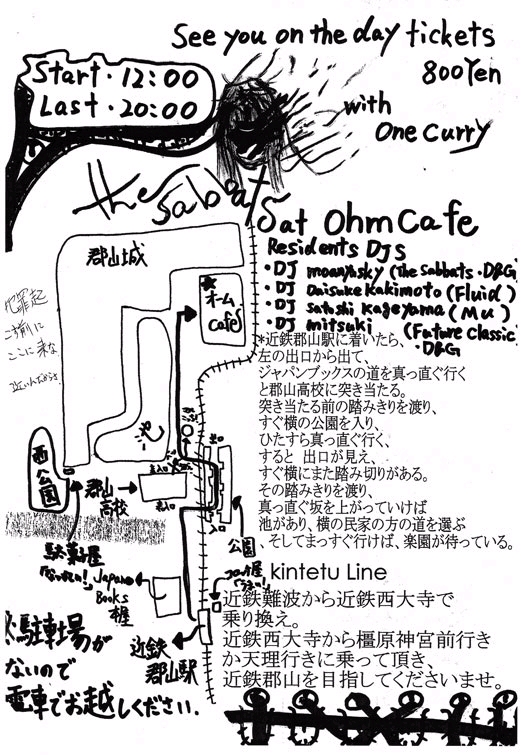 See you on the day tickets
800Yen
with
One curry
Start・12:00
Last・20:00
the Sabbat
Sat Ohm Cafe
Residents DJs
・DJ moonyasky (The Sabbats・D&G)
・DJ Daisuke Kakimoto (Fluid)
・DJ Satoshi Kageyama (Mu)
・DJ mitsuki (Future Classic・D&G
郡山城
★オーム
cafe
*近鉄郡山駅に着いたら、
左の出口から出て、
ジャパンブックスの道を真っ直ぐ行く
と郡山高校に突き当たる。
突き当たる前の踏みきりを渡り、
すぐ横の公園を入り、
ひたすら真っ直ぐ行く、
すると 出口が見え、
すぐ横にまた踏み切りがある。
その踏みきりを渡り、
真っ直ぐ坂を上がっていけば
池があり、横の民家の方の道を選ぶ
、そしてまっすぐ行けば、楽園が待っている。
ここに来な
池
西公園
郡山
高校
出口
入口
公園
駄菓子屋
Japan
Books
コロッケ屋
近鉄
郡山駅
kintetu Line
近鉄難波から近鉄西大寺で
乗り換え。
近鉄西大寺から橿原神宮前行き
か天理行きに乗って頂き、
近鉄郡山を目指してくださいませ。
駐車場が
ないので
電車でお越しください.